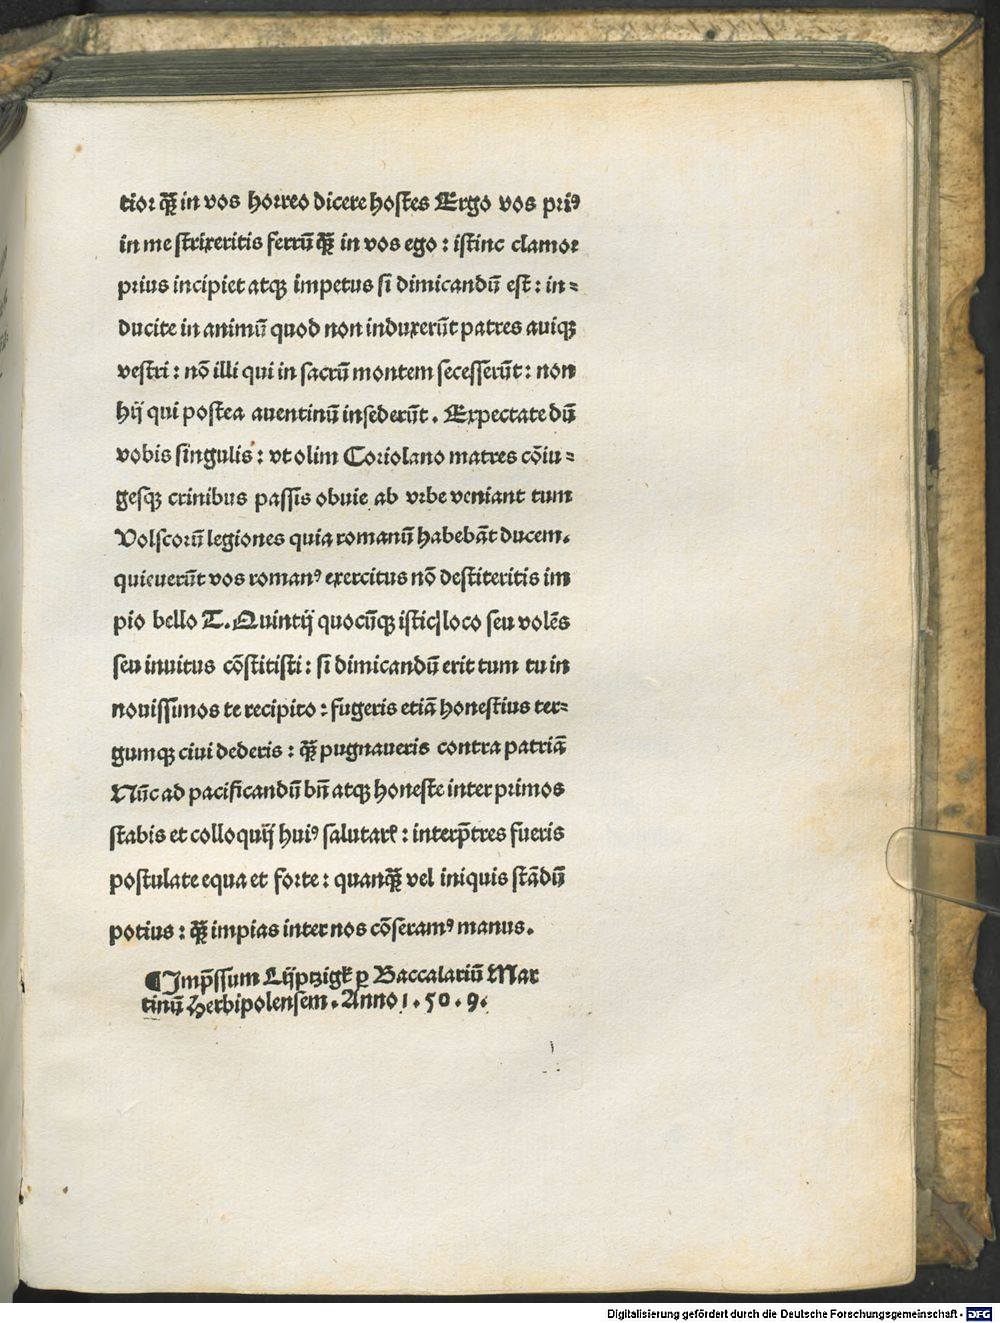 tior qȝ̃ in vos horreo dicere hostes Ergo vos priꝰ
in me strixeritis ferrũ qȝ̃ in vos ego : istinc clamor
prius incipiet atqȝ impetus si dimicandũ est : in=
ducite in animũ quod non induxerũt patres auiqȝ
vestri : nõ illi qui in sacrũ montem secesserũt : non
hij qui postea auentinũ insederũt . Expectate dũ
vobis singulis : vt olim Coriolano matres cõiu=
gesqȝ crinibus passis obuie ab vrbe veniant tum
Volscorũ legiones quia romanũ habebãt ducem.
quieuerũt vos romanꝰ exercitus nõ destiteritis im
pio bello T. Quintij quocũqȝ isticꝗ loco seu volẽs
seu inuitus cõstitisti : si dimicandũ erit tum tu in
nouissimos te recipito : fugeris etiã honestius ter=
gumqȝ ciui dederis : qȝ̃ pugnaueris contra patriã
Nũc ad pacificandũ bñ atqȝ honeste inter primos
stabis et colloquij huiꝰ salutarꝭ : interp̃tres fueris
postulate equa et forte : quanqȝ̃ vel iniquis stãdũ
potius : qȝ̃ impias inter nos cõseramꝰ manus.
¶ Imp̃ssum Lijptzigk̃ ꝑ Baccalariũ Mar
tinũ Herbipolensem. Anno 1.50.9.
Digitalisierung gefördert durch die Deutsche Forschungsgemeinschaft - DFG